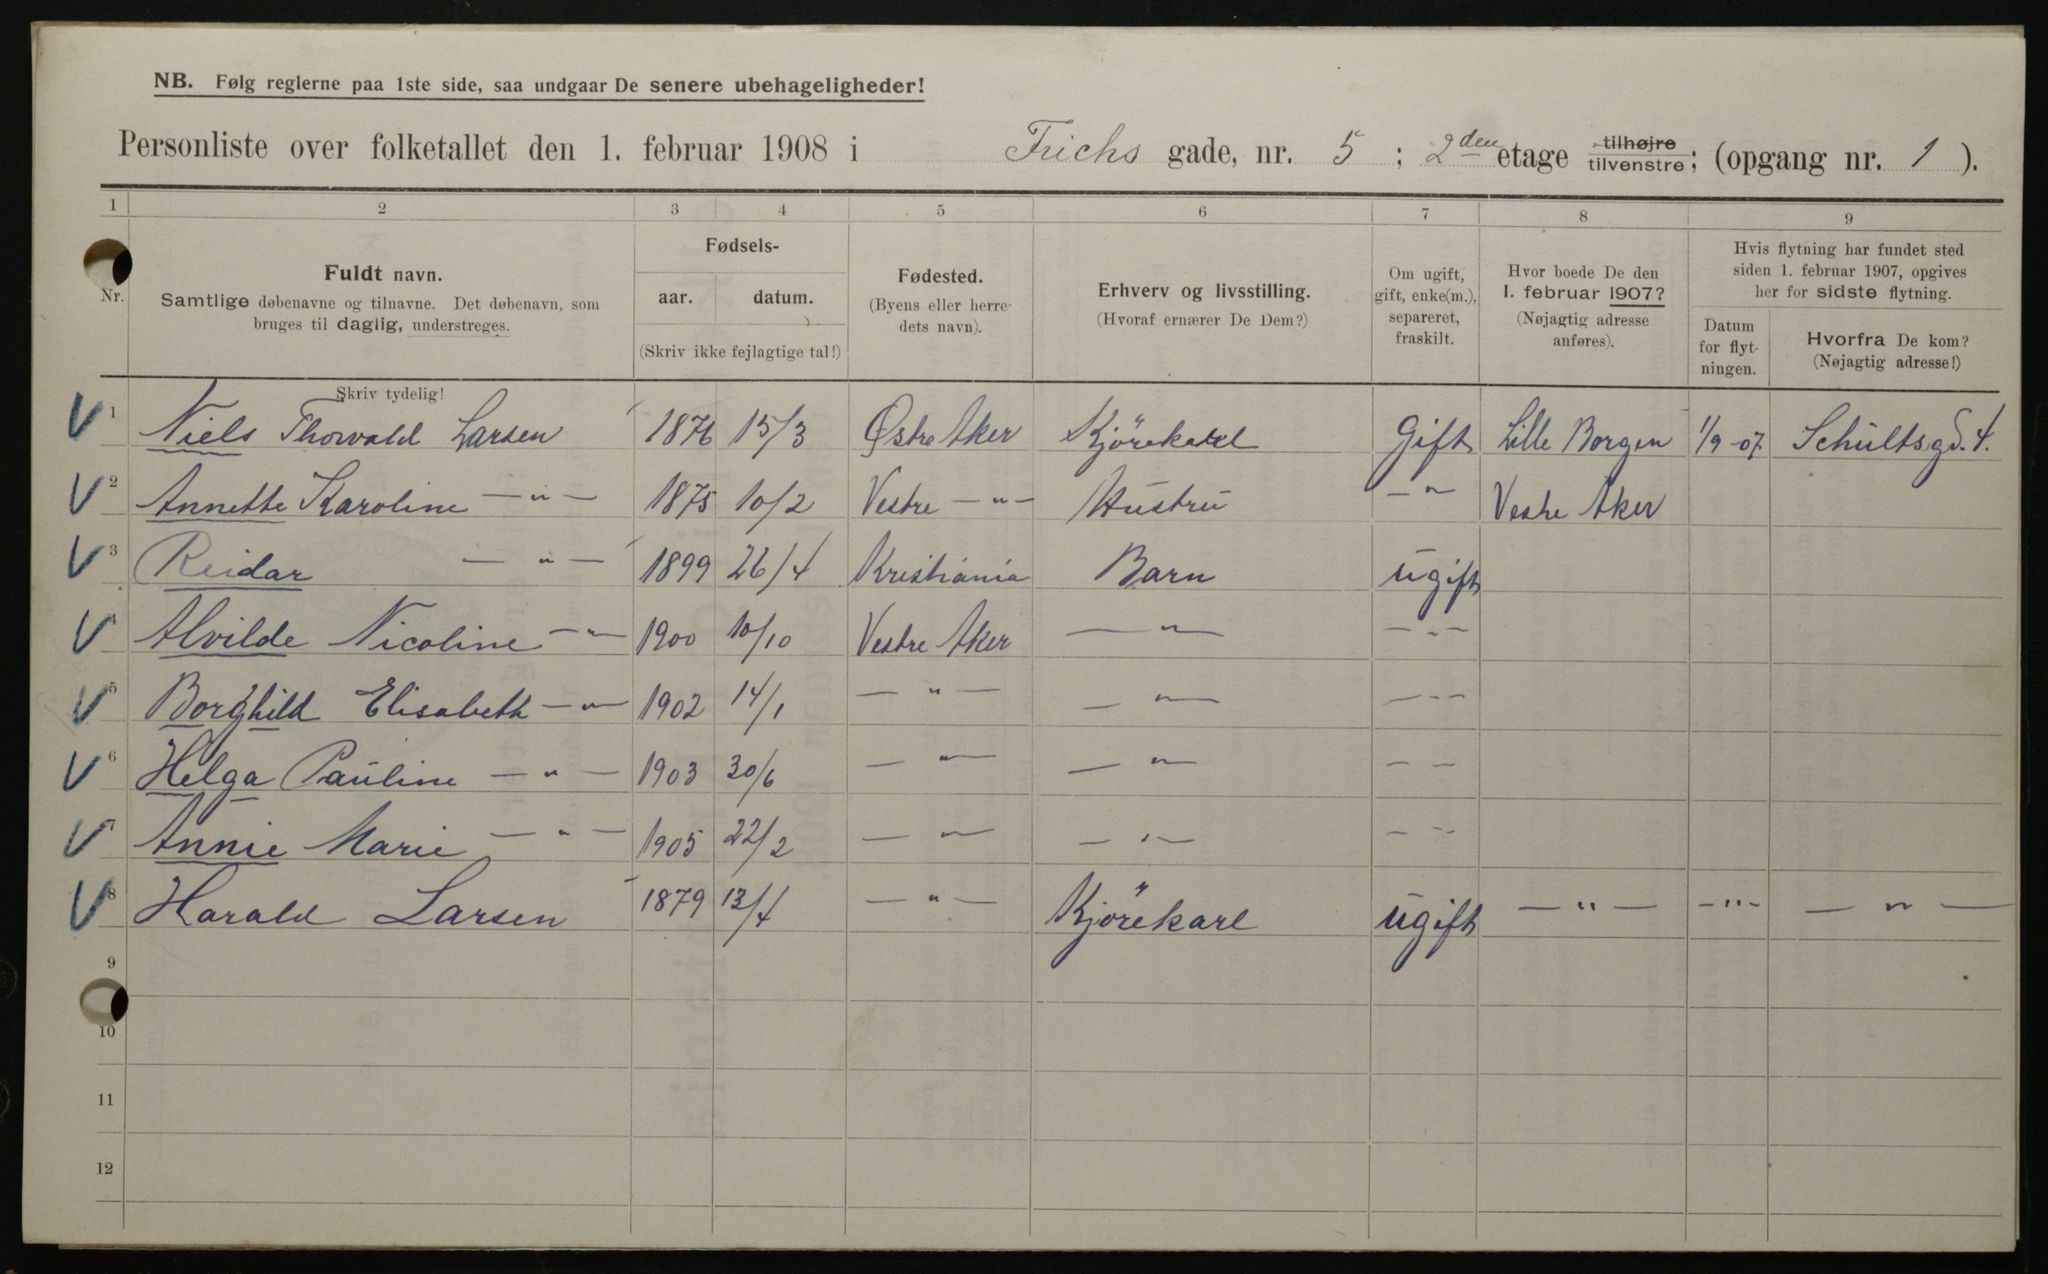 NB. Følg reglerne paa 1ste side, saa undgaar De senere ubehageligheder!
Personliste over folketallet den 1. februar 1908 i Frichs gade, nr. 5; 2den etage tilhøjre tilvenstre; (opgang nr. 1).
1 2 3 4 5 6 7 8 9
Nr.
Fuldt navn.
Samtlige døbenavne og tilnavne. Det døbenavn, som
bruges til daglig, understreges.
Skriv tydelig!
Fødsels-
aar. datum.
(Skriv ikke fejlagtige tal!)
Fødested.
(Byens eller herre-
dets navn).
Erhverv og livsstilling.
(Hvoraf ernærer De Dem?)
Om ugift,
gift, enke(m.),
separeret,
fraskilt.
Hvor boede De den
1. februar 1907?
(Nøjagtig adresse
anføres).
Hvis flytning har fundet sted
siden 1. februar 1907, opgives
her for sidste flytning.
Datum
for flyt-
ningen.
Hvorfra De kom?
(Nøjagtig adresse!)
V 1 Niels Thorvald Larsen 1876 15/3 Østre Aker Kjörekarl Gift Lille Borgen 1/9-07 Schultsgd. 4.
V 2 Annette Karoline — " — 1875 10/2 Vestre — " — Hustru — " Vestre Aker
V 3 Reidar — " — 1899 26/4 Kristiania Barn ugift
V 4 Alvilde Nicoline — " — 1900 10/10 Vestre Aker — " — — " —
V 5 Borghild Elisabeth — " — 1902 14/1 — " — — " — — " —
V 6 Helga Pauline — " — 1903 30/6 — " — — " — — " —
V 7 Annie Marie — " — 1905 22/2 — " — — " — — " —
V 8 Harald Larsen 1879 13/4 — " — Kjörekarl ugift — " — — " — — " —
9
10
11
12